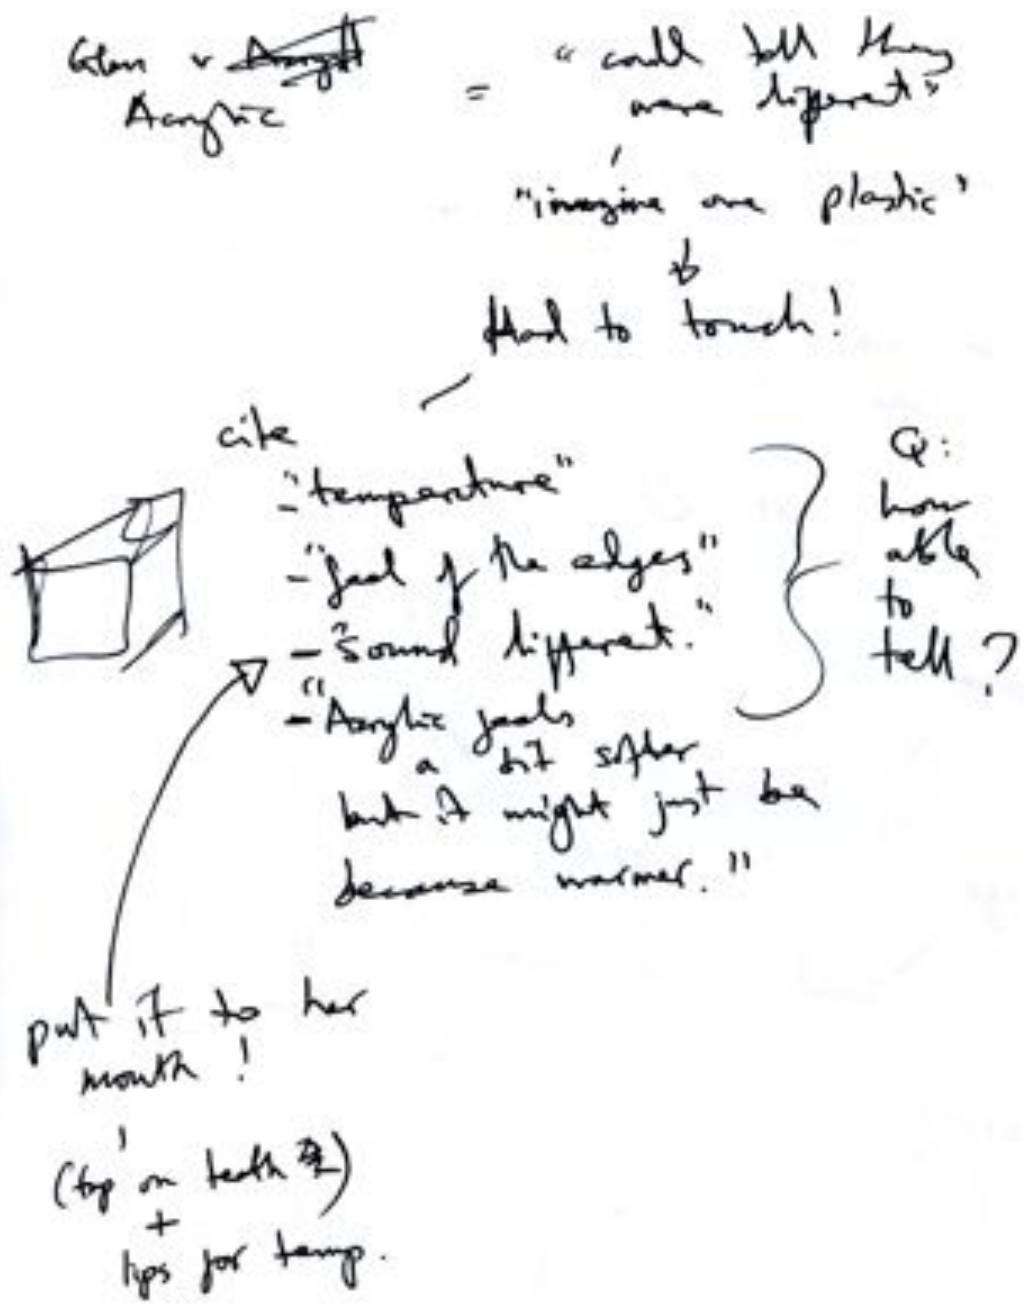 Glass v
Acrylic
=
"could tell they
were different"
"imagine one plastic"
Had to touch!
cite
- "temperature"
- "feel of the edges"
- "Sound different."
- "Acrylic feels
a bit softer
but it might just be
because warmer."
Q:
how
able
to
tell?
put it to her
mouth!
(tap on teeth)
+
lips for temp.